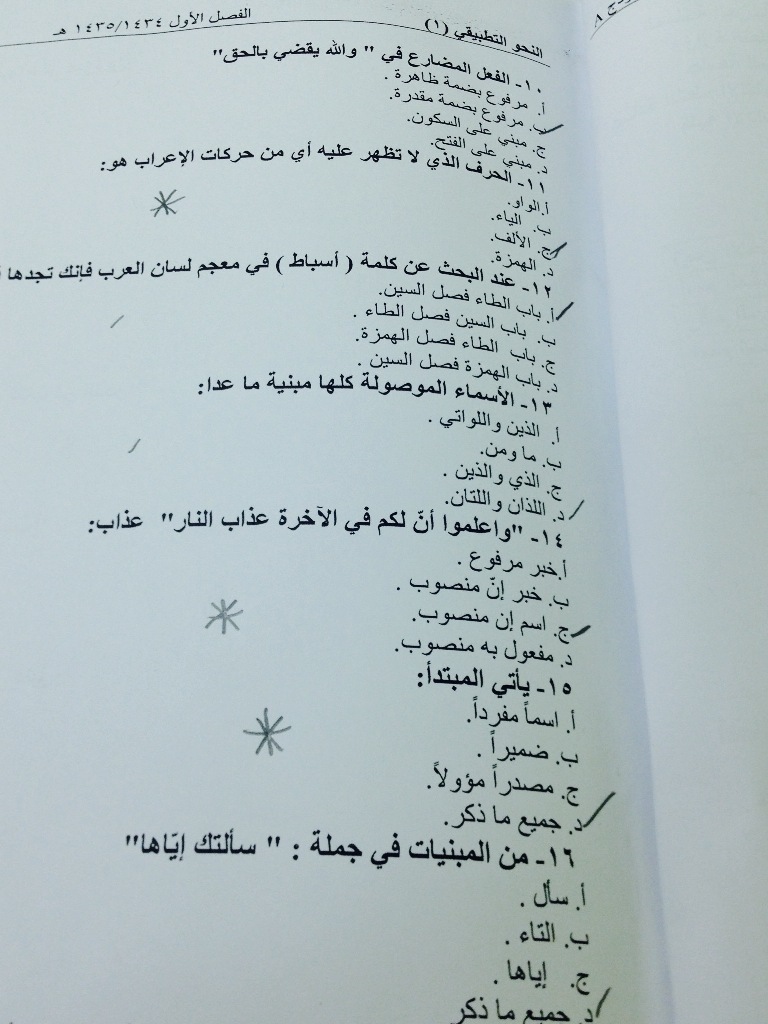 الفصل الأول ١٤٣٤/١٤٣٥ هـ
النحو التطبيقي (١)
١٠- الفعل المضارع في " والله يقضي بالحق"
أ. مرفوع بضمة ظاهرة .
ب. مرفوع بضمة مقدرة.
ج. مبني على السكون.
د. مبني على الفتح.
١١- الحرف الذي لا تظهر عليه أي من حركات الإعراب هو:
أ.الواو.
ب. الياء.
ج. الألف.
د. الهمزة.
١٢- عند البحث عن كلمة ( أسباط ) في معجم لسان العرب فإنك تجدها
أ. باب الطاء فصل السين.
ب. باب السين فصل الطاء .
ج. باب الطاء فصل الهمزة.
د. باب الهمزة فصل السين .
١٣- الأسماء الموصولة كلها مبنية ما عدا:
أ. الذين واللواتي .
ب. ما ومن.
ج. الذي والذين .
د. اللذان واللتان.
١٤- "واعلموا أنّ لكم في الآخرة عذاب النار" عذاب:
أ.خبر مرفوع .
ب. خبر إنّ منصوب .
ج. اسم إن منصوب.
د. مفعول به منصوب.
١٥- يأتي المبتدأ:
أ. اسماً مفرداً.
ب. ضميراً .
ج. مصدراً مؤولاً.
د. جميع ما ذكر.
١٦- من المبنيات في جملة : " سألتك إيّاها"
أ. سأل .
ب. التاء .
ج. إياها .
د. جميع ما ذكر